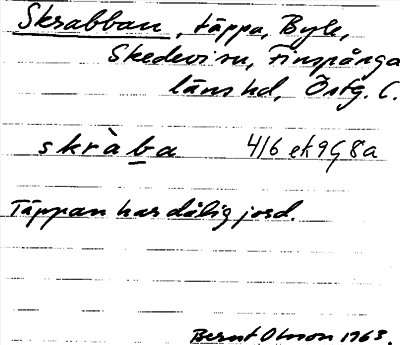 Skrabban, täppa, Byle,
Skedevi sn, Finspånga
läns hd, Östg. L.
skràba 4/6 ek 9G8a
Täppan har dålig jord.
Bernt Olsson 1963.